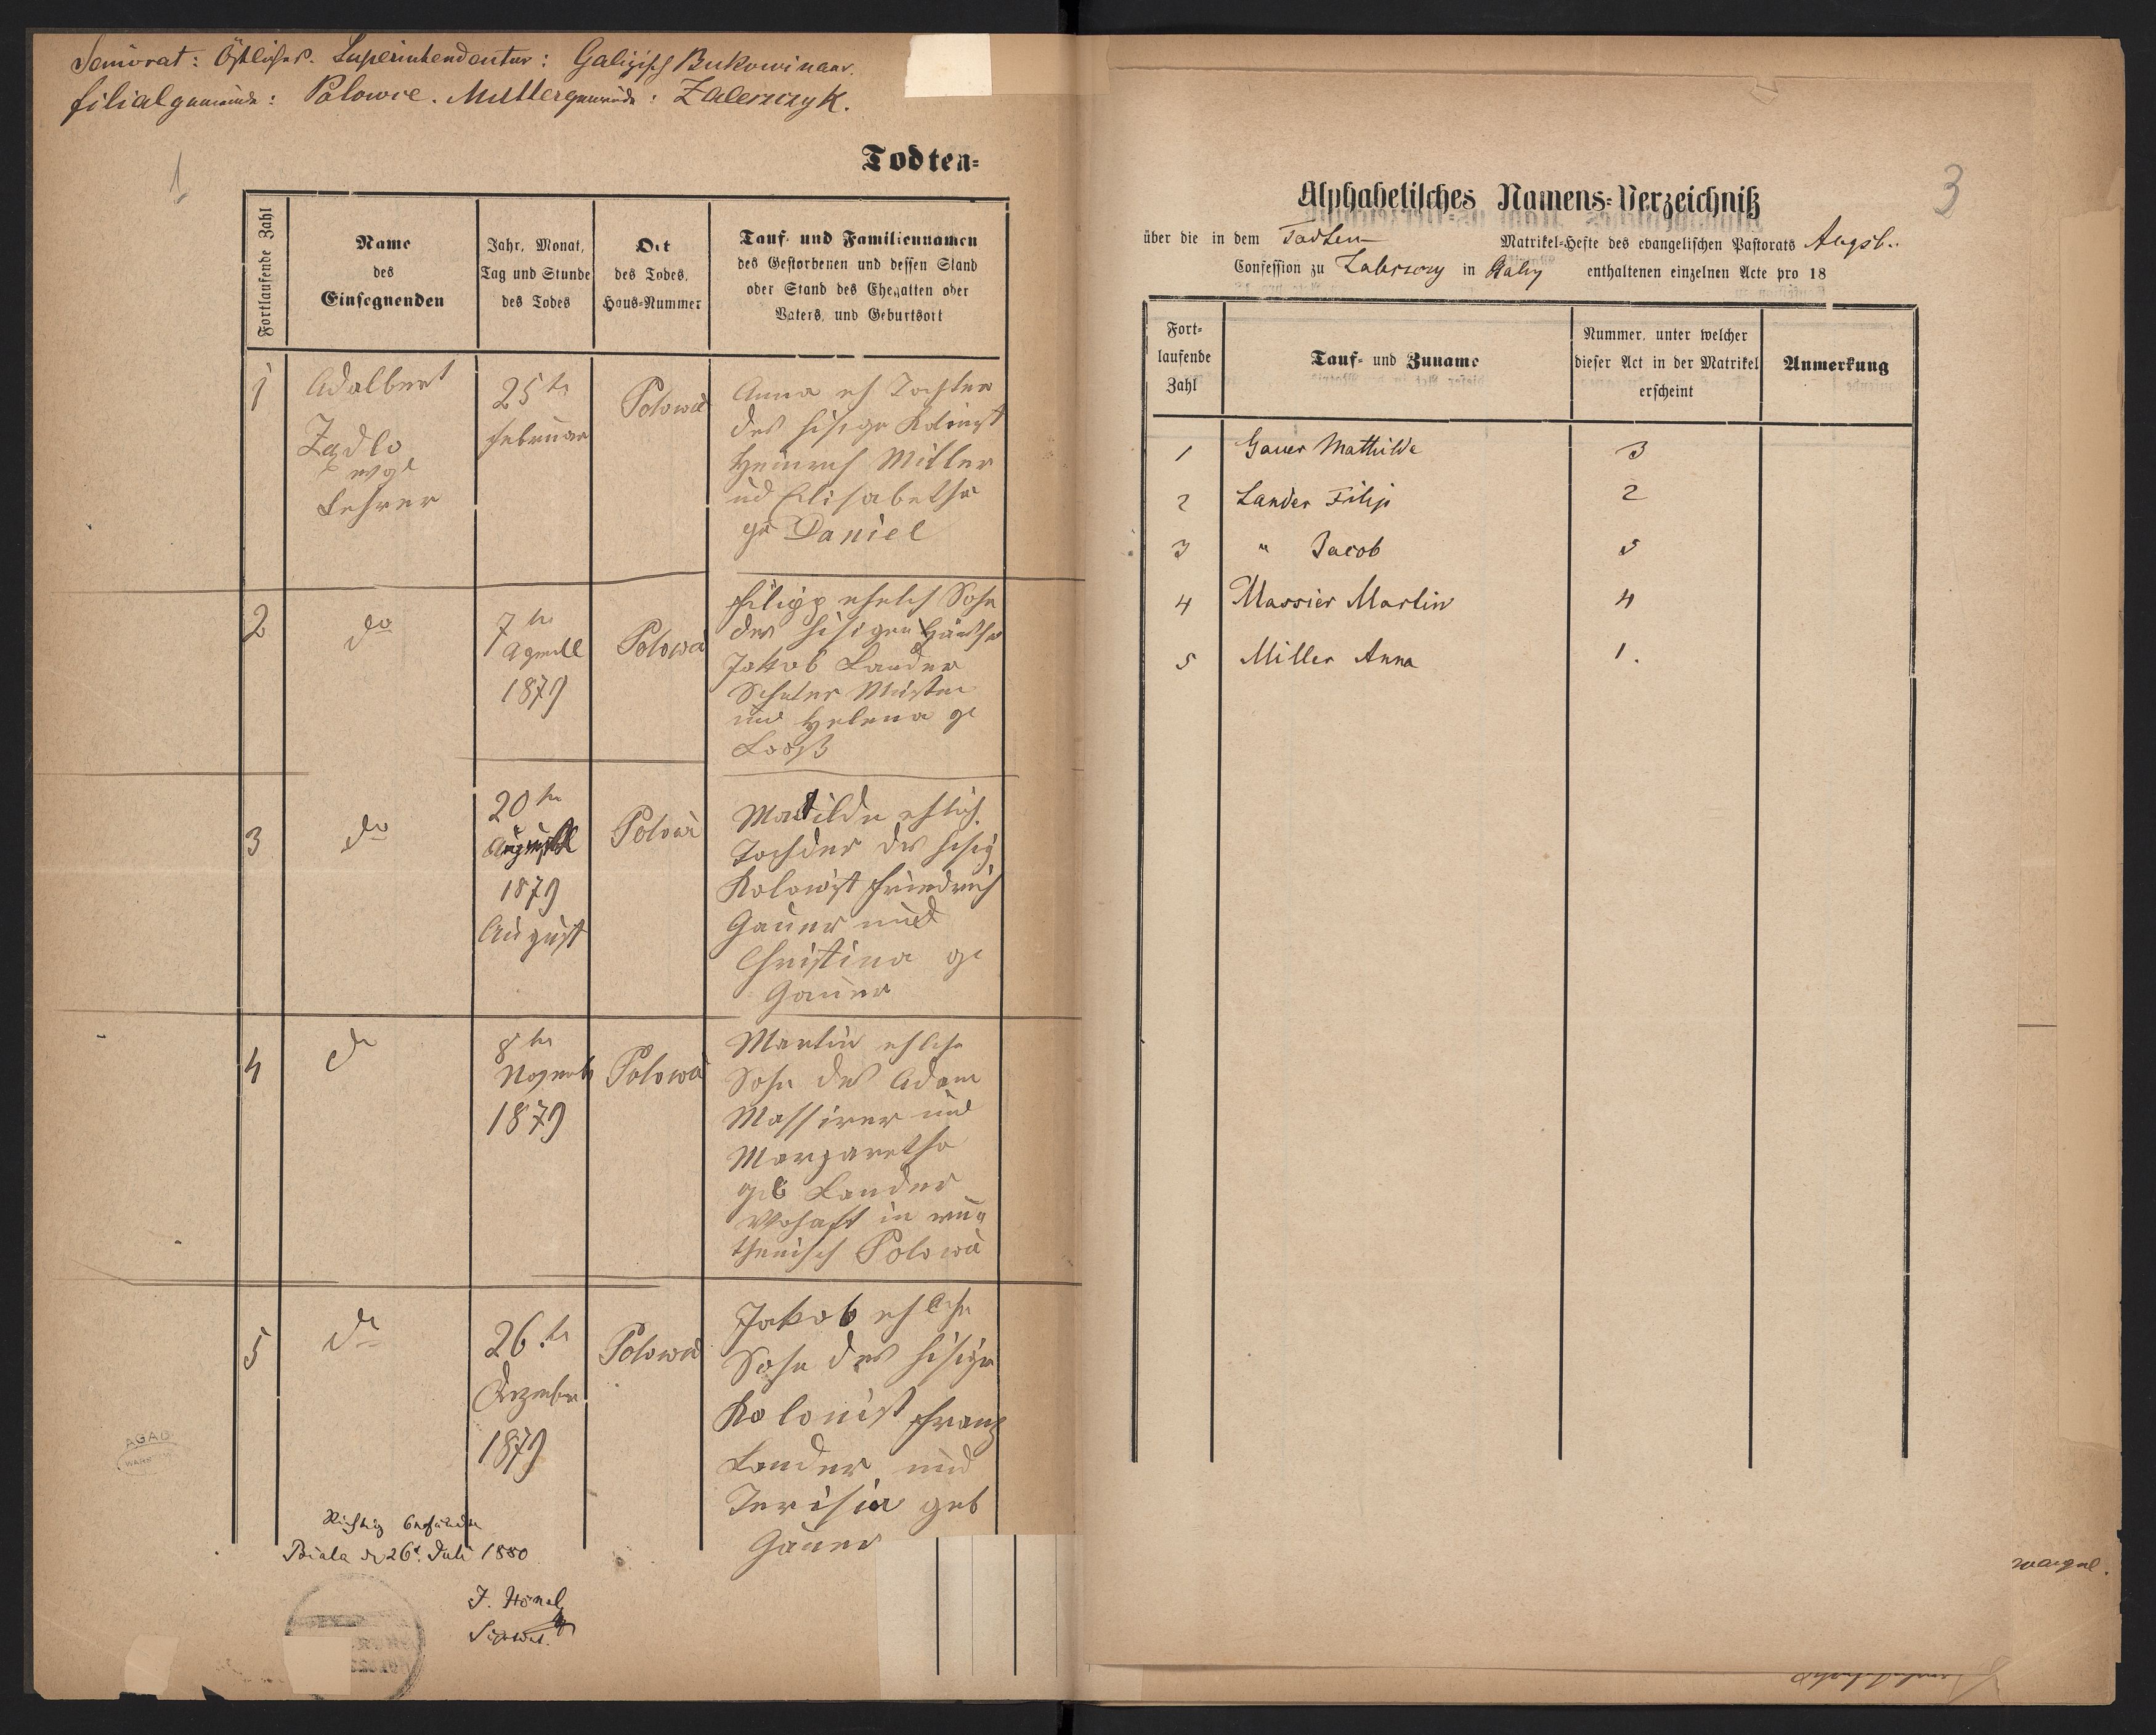 Seniorat: Östliches. Superintendentur: Galizisch Bukowinaer.
Filialgemeinde: Polowce. Muttergemeinde: Zaleszczyk.
1
Todten=
Fortlaufende Zahl
Name
des
Einsegnenden
Jahr, Monat,
Tag und Stunde
des Todes
Ort
des Todes,
Haus-Nummer
Tauf- und Familiennamen
des Gestorbenen und dessen Stand
oder Stand des Ehegatten oder
Vaters, und Geburtsort
1
Adalbert
Zadlo
evgl
Lehrer
25te
Februar
Polowce
Anna eh Tochter
des hisige Kolinist
Heinrich Miller
ud Elisabetha
ge Daniel
2
do
7te
April
1879
Polowce
Filipp ehelich Sohn
des hisigen
Jakob Lander
und Helena ge
Looß
3
do
20te
August
1879
August
Polowce
Matilde ehlich.
Tochder des hisig
Kolonist Friedrich
Gauer und
Christina ge
Gauer
4
do
8te
Novemb
1879
Polowce
Martin ehliche
Sohn des Adam
Massirer und
Margaretha
geb Lander
Wohaft in ruu
thenisch Polowce
5
do
26te
Dezember
1879
Polowce
Jakob ehliche
Sohn des hisige
Kolonist Franz
Lander und
Terisia geb
Gauer
Richtig befunden
Biala d. 26t. Juli 1880
J. Hönel
AGAD
3
Alphabetisches Namens-Verzeichniß
über die in dem Todten Matrikel-Hefte des evangelischen Pastorats Augsb.
Confession zu Zalesczy in Galiz enthaltenen einzelnen Acte pro 18
Fort-
laufende
Zahl
Tauf- und Zuname
Nummer, unter welcher
dieser Act in der Matrikel
erscheint
Anmerkung
1 Gauer Mathilde 3
2 Lander Filip 2
3 " Jacob 5
4 Massier Martin 4
5 Miller Anna 1.